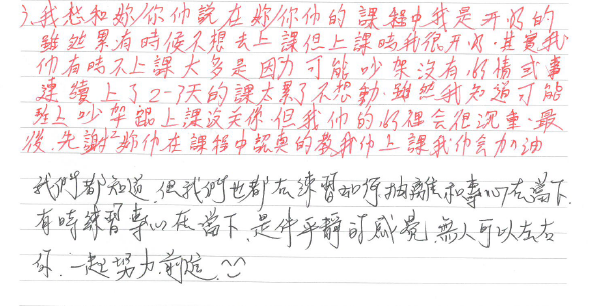 3.我想和妳/你仰說在妳/你仰的課程中我是开的的
雖然累有時候不想去上課但上課時我很开心.其實我
仰有時不上課大多是因力可能吵架沒有心情或事
連續上了2-3天的課太累了不想動.雖然我知道可能
班上吵架認上課沒关係.但我仰的心裡会很沉重.最
後.先謝謝妳仰在課程中認真的教我仰上課我仰会加油
我們都知道,但我們也都在練習如何抽離和專心在當下.
有時練習專心在當下,是件平靜的感覺,無人可以左右
你.一起努力前進.